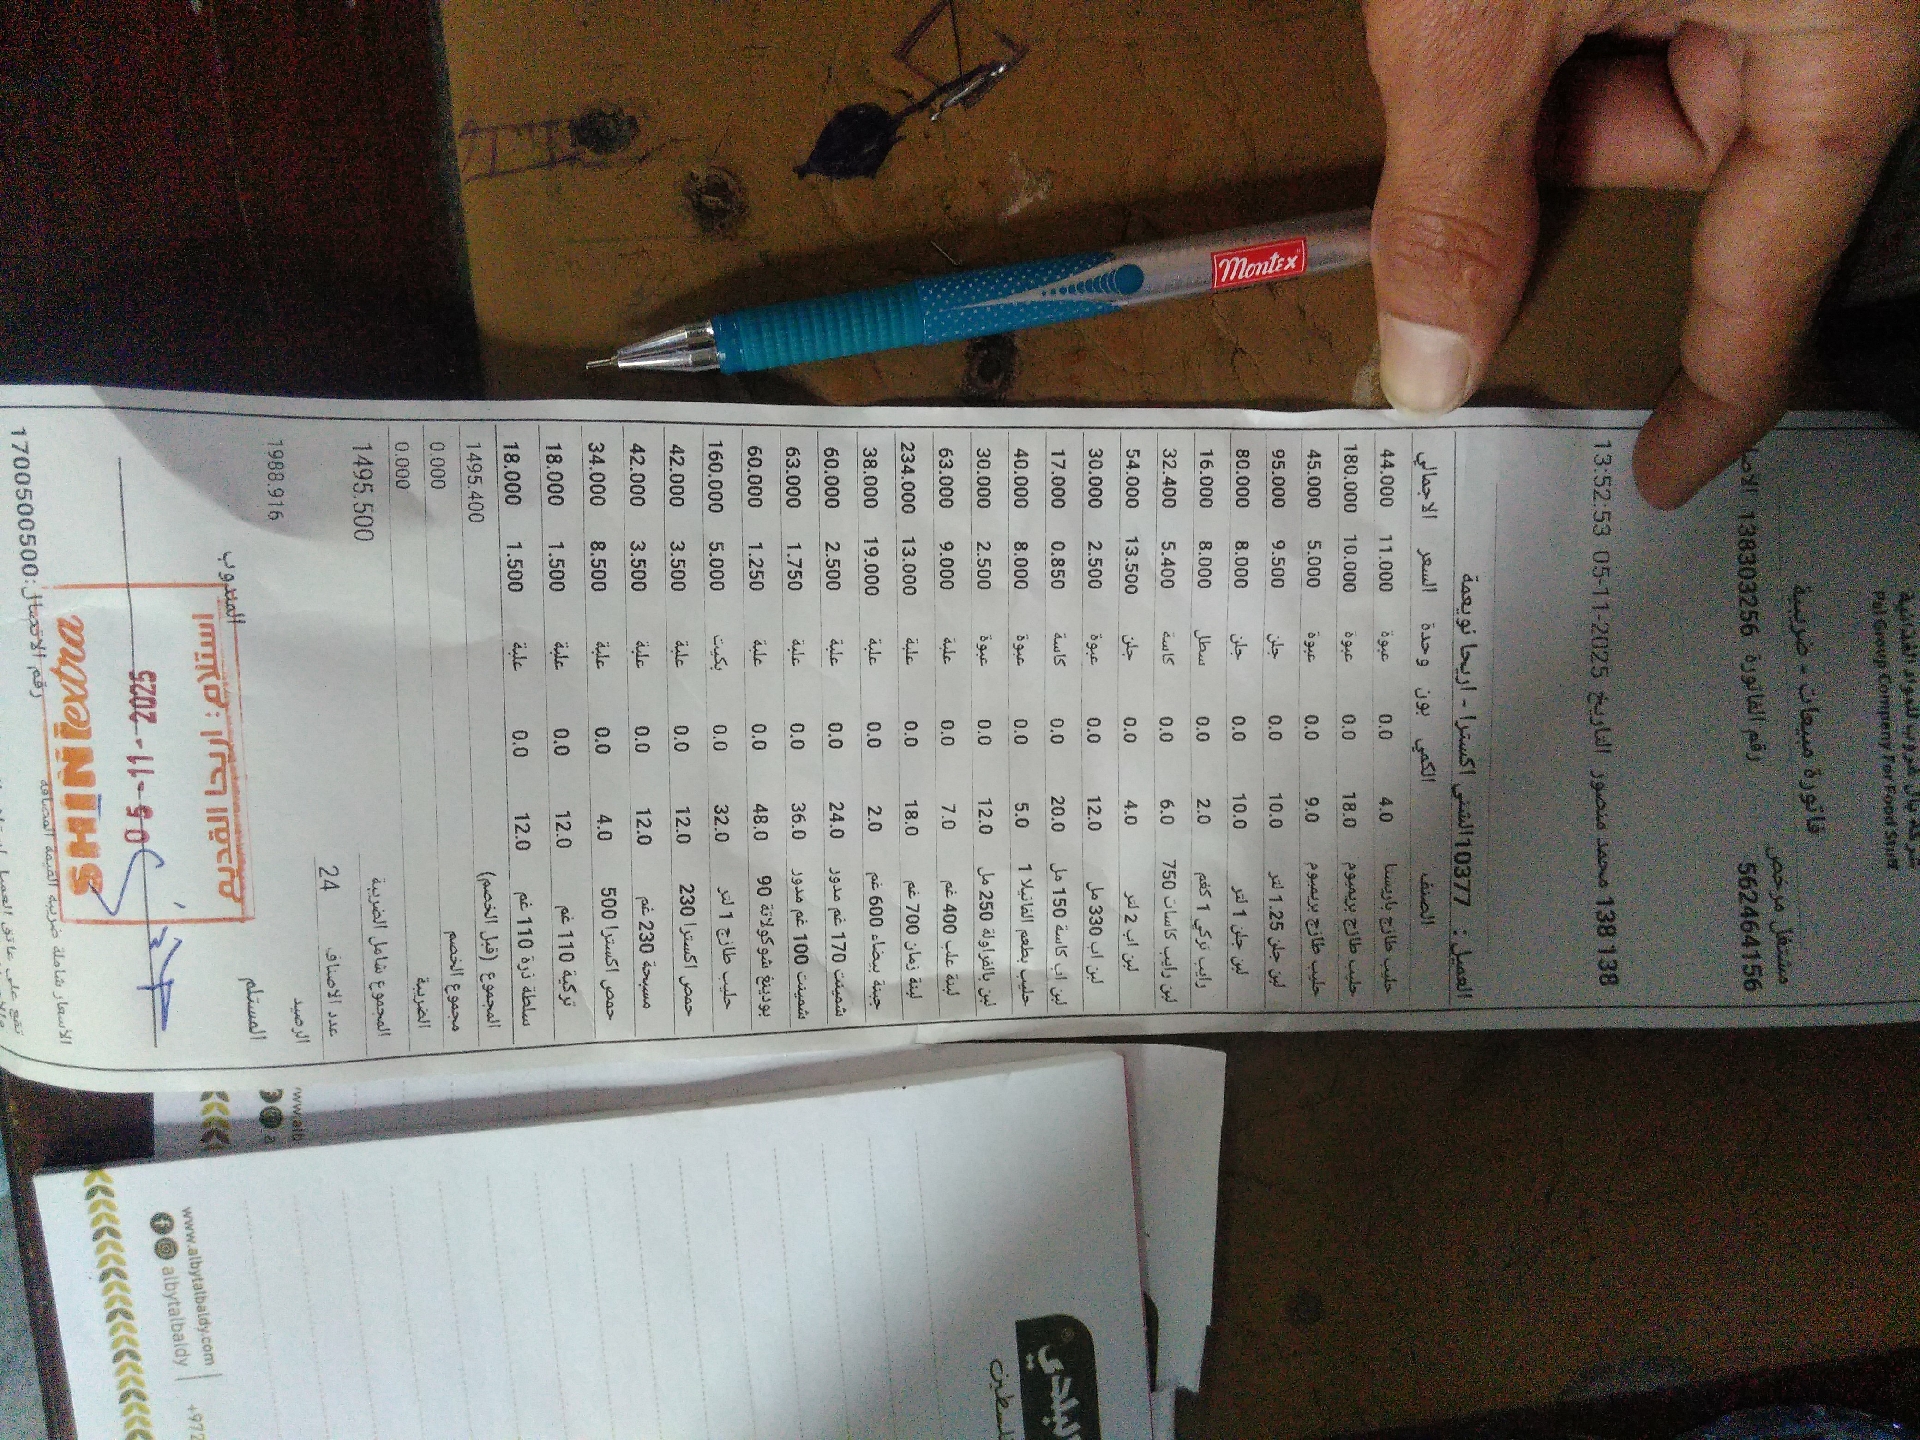 Pal Group Company For Food Stuff
فاتورة مبيعات - ضريبية
مشتغل مرخص 562464156
رقم الفاتورة 138303256
138138 محمد منصور التاريخ 05-11-2025 13:52:53
العميل : 10377 الشني اكسترا - اريحا نويعمة
الصنف الكمي بون وحدة السعر الاجمالي
حليب طازج باريستا 4.0 0.0 عبوة 11.000 44.000
حليب طازج بريميوم 18.0 0.0 عبوة 10.000 180.000
حليب طازج بريميوم 9.0 0.0 عبوة 5.000 45.000
لبن جلن 1.25 لتر 10.0 0.0 جلن 9.500 95.000
لبن جلن 1 لتر 10.0 0.0 جلن 8.000 80.000
رايب تركي 1 كغم 2.0 0.0 سطل 8.000 16.000
لبن رايب كاسات 750 6.0 0.0 كاسة 5.400 32.400
لبن اب 2 لتر 4.0 0.0 جلن 13.500 54.000
لبن اب 330 مل 12.0 0.0 عبوة 2.500 30.000
لبن اب كاسة 150 مل 20.0 0.0 كاسة 0.850 17.000
حليب بطعم الفانيلا 1 5.0 0.0 عبوة 8.000 40.000
لبن بالفراولة 250 مل 12.0 0.0 عبوة 2.500 30.000
لبنة علب 400 غم 7.0 0.0 علبة 9.000 63.000
لبنة زمان 700 غم 18.0 0.0 علبة 13.000 234.000
جبنة بيضاء 600 غم 2.0 0.0 علبة 19.000 38.000
شمينت 170 غم مدور 24.0 0.0 علبة 2.500 60.000
شمينت 100 غم مدور 36.0 0.0 علبة 1.750 63.000
بودينغ شوكولاتة 90 48.0 0.0 علبة 1.250 60.000
حليب طازج 1 لتر 32.0 0.0 بكيت 5.000 160.000
حمص اكسترا 230 12.0 0.0 علبة 3.500 42.000
مسبحة 230 غم 12.0 0.0 علبة 3.500 42.000
حمص اكسترا 500 4.0 0.0 علبة 8.500 34.000
تركية 110 غم 12.0 0.0 علبة 1.500 18.000
سلطة ذرة 110 غم 12.0 0.0 علبة 1.500 18.000
المجموع (قبل الخصم) 1495.400
مجموع الخصم 0.000
الضريبة 0.000
المجموع شامل الضريبة 1495.500
عدد الاصناف 24
الرصيد 1988.916
المستلم المندوب
استلام : اريحا القديم
05-11-2025
SHINIextra
الاسعار شاملة ضريبة القيمة المضافة
رقم الاتصال:1700500500
Montex
www.albytalbaldy.com
albytalbaldy
+972